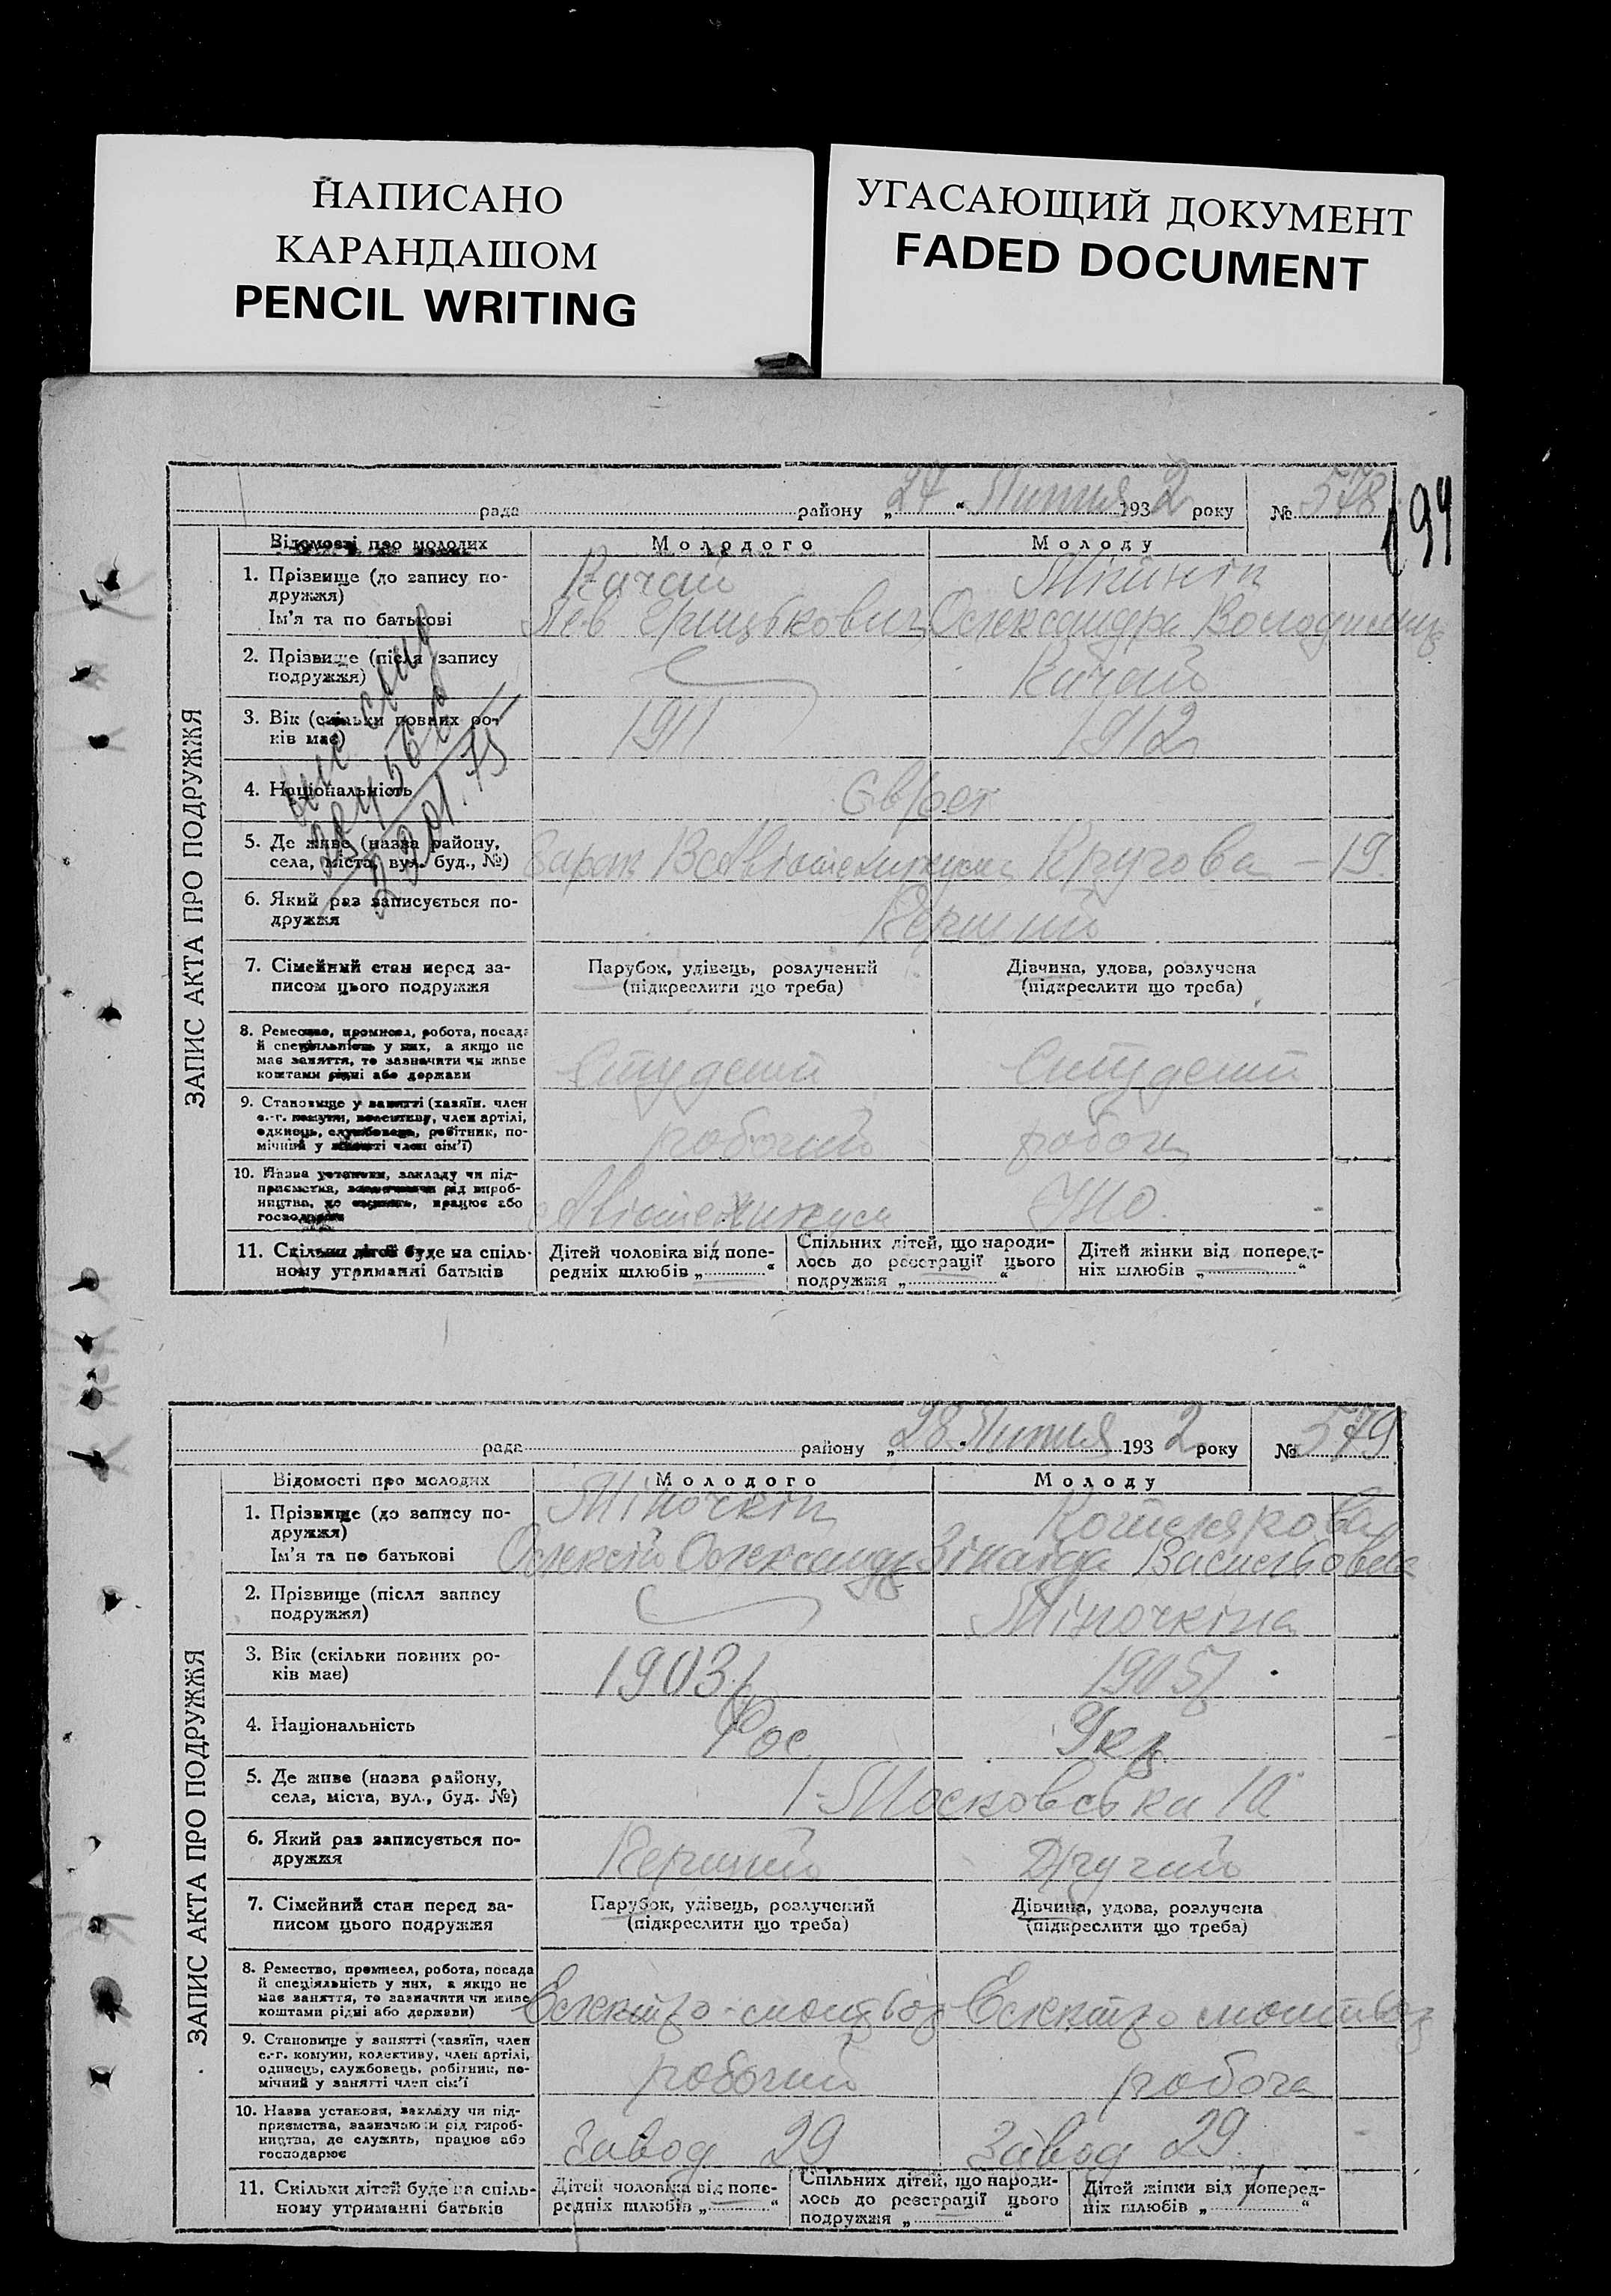 НАПИСАНО
КАРАНДАШОМ
PENCIL WRITING
УГАСАЮЩИЙ ДОКУМЕНТ
FADED DOCUMENT
194
рада району „24“ Липня 1932 року № 578
ЗАПИС АКТА ПРО ПОДРУЖЖЯ
Відомості про молодих Молодого Молоду
1. Прізвище (до запису по-
дружжя)
Качан
Ім'я та по батькові
Лев Грицькович Олександра
2. Прізвище (після запису
подружжя)
Качан
3. Вік (скільки повних ро-
ків має)
1911 1912
4. Національність
Євреї
5. Де живе (назва району,
села, міста, вул. буд., №)
Кругова – 19
6. Який раз записується по-
дружжя
Перший
7. Сімейний стан перед за-
писом цього подружжя
Парубок, удівець, розлучений
(підкреслити що треба)
Дівчина, удова, розлучена
(підкреслити що треба)
8. Ремество, промисел, робота, посада
й спеціяльність у них, а якщо не
має заняття, то зазначити чи живе
коштами рідні або держави
Студент Студент
9. Становище у занятті (хазяїн, член
с.-г. комуни, колективу, член артілі,
одинець, службовець, робітник, по-
мічний у занятті член сім'ї)
робочий робоч
10. Назва установи, закладу чи під-
приємства, зазначаючи рід вироб-
ництва, де служить, працює або
господарює
ІНО.
11. Скільки дітей буде на спіль-
ному утриманні батьків
Дітей чоловіка від попе-
редніх шлюбів „ “
Спільних дітей, що народи-
лось до реєстрації цього
подружжя „ “
Дітей жінки від поперед-
ніх шлюбів „ “
рада району „28 Липня 1932 року № 579
ЗАПИС АКТА ПРО ПОДРУЖЖЯ
Відомості про молодих Молодого Молоду
1. Прізвище (до запису по-
дружжя)
Міночкін Котлярова
Ім'я та по батькові
Олексій Олександр Зінаїда Васильовна
2. Прізвище (після запису
подружжя)
Міночкіна
3. Вік (скільки повних ро-
ків має)
1903 р 1905 р
4. Національність
Рос Укр
5. Де живе (назва району,
села, міста, вул., буд. №)
1-Московська 10
6. Який раз записується по-
дружжя
Перший Другий
7. Сімейний стан перед за-
писом цього подружжя
Парубок, удівець, розлучений
(підкреслити що треба)
Дівчина, удова, розлучена
(підкреслити що треба)
8. Ремество, промисел, робота, посада
й спеціяльність у них, а якщо не
має заняття, то зазначити чи живе
коштами рідні або держави)
Електро-монтьор Електро монтьор
9. Становище у занятті (хазяїн, член
с.-г. комуни, колективу, член артілі,
одинець, службовець, робітник, по-
мічний у занятті член сім'ї
робочий робоча
10. Назва установи, закладу чи під-
приємства, зазначаючи рід вироб-
ництва, де служить, працює або
господарює
Завод 29 Завод 29
11. Скільки дітей буде на спіль-
ному утриманні батьків
Дітей чоловіка від попе-
редніх шлюбів „ “
Спільних дітей, що народи-
лось до реєстрації цього
подружжя „ “
Дітей жінки від поперед-
ніх шлюбів „ “